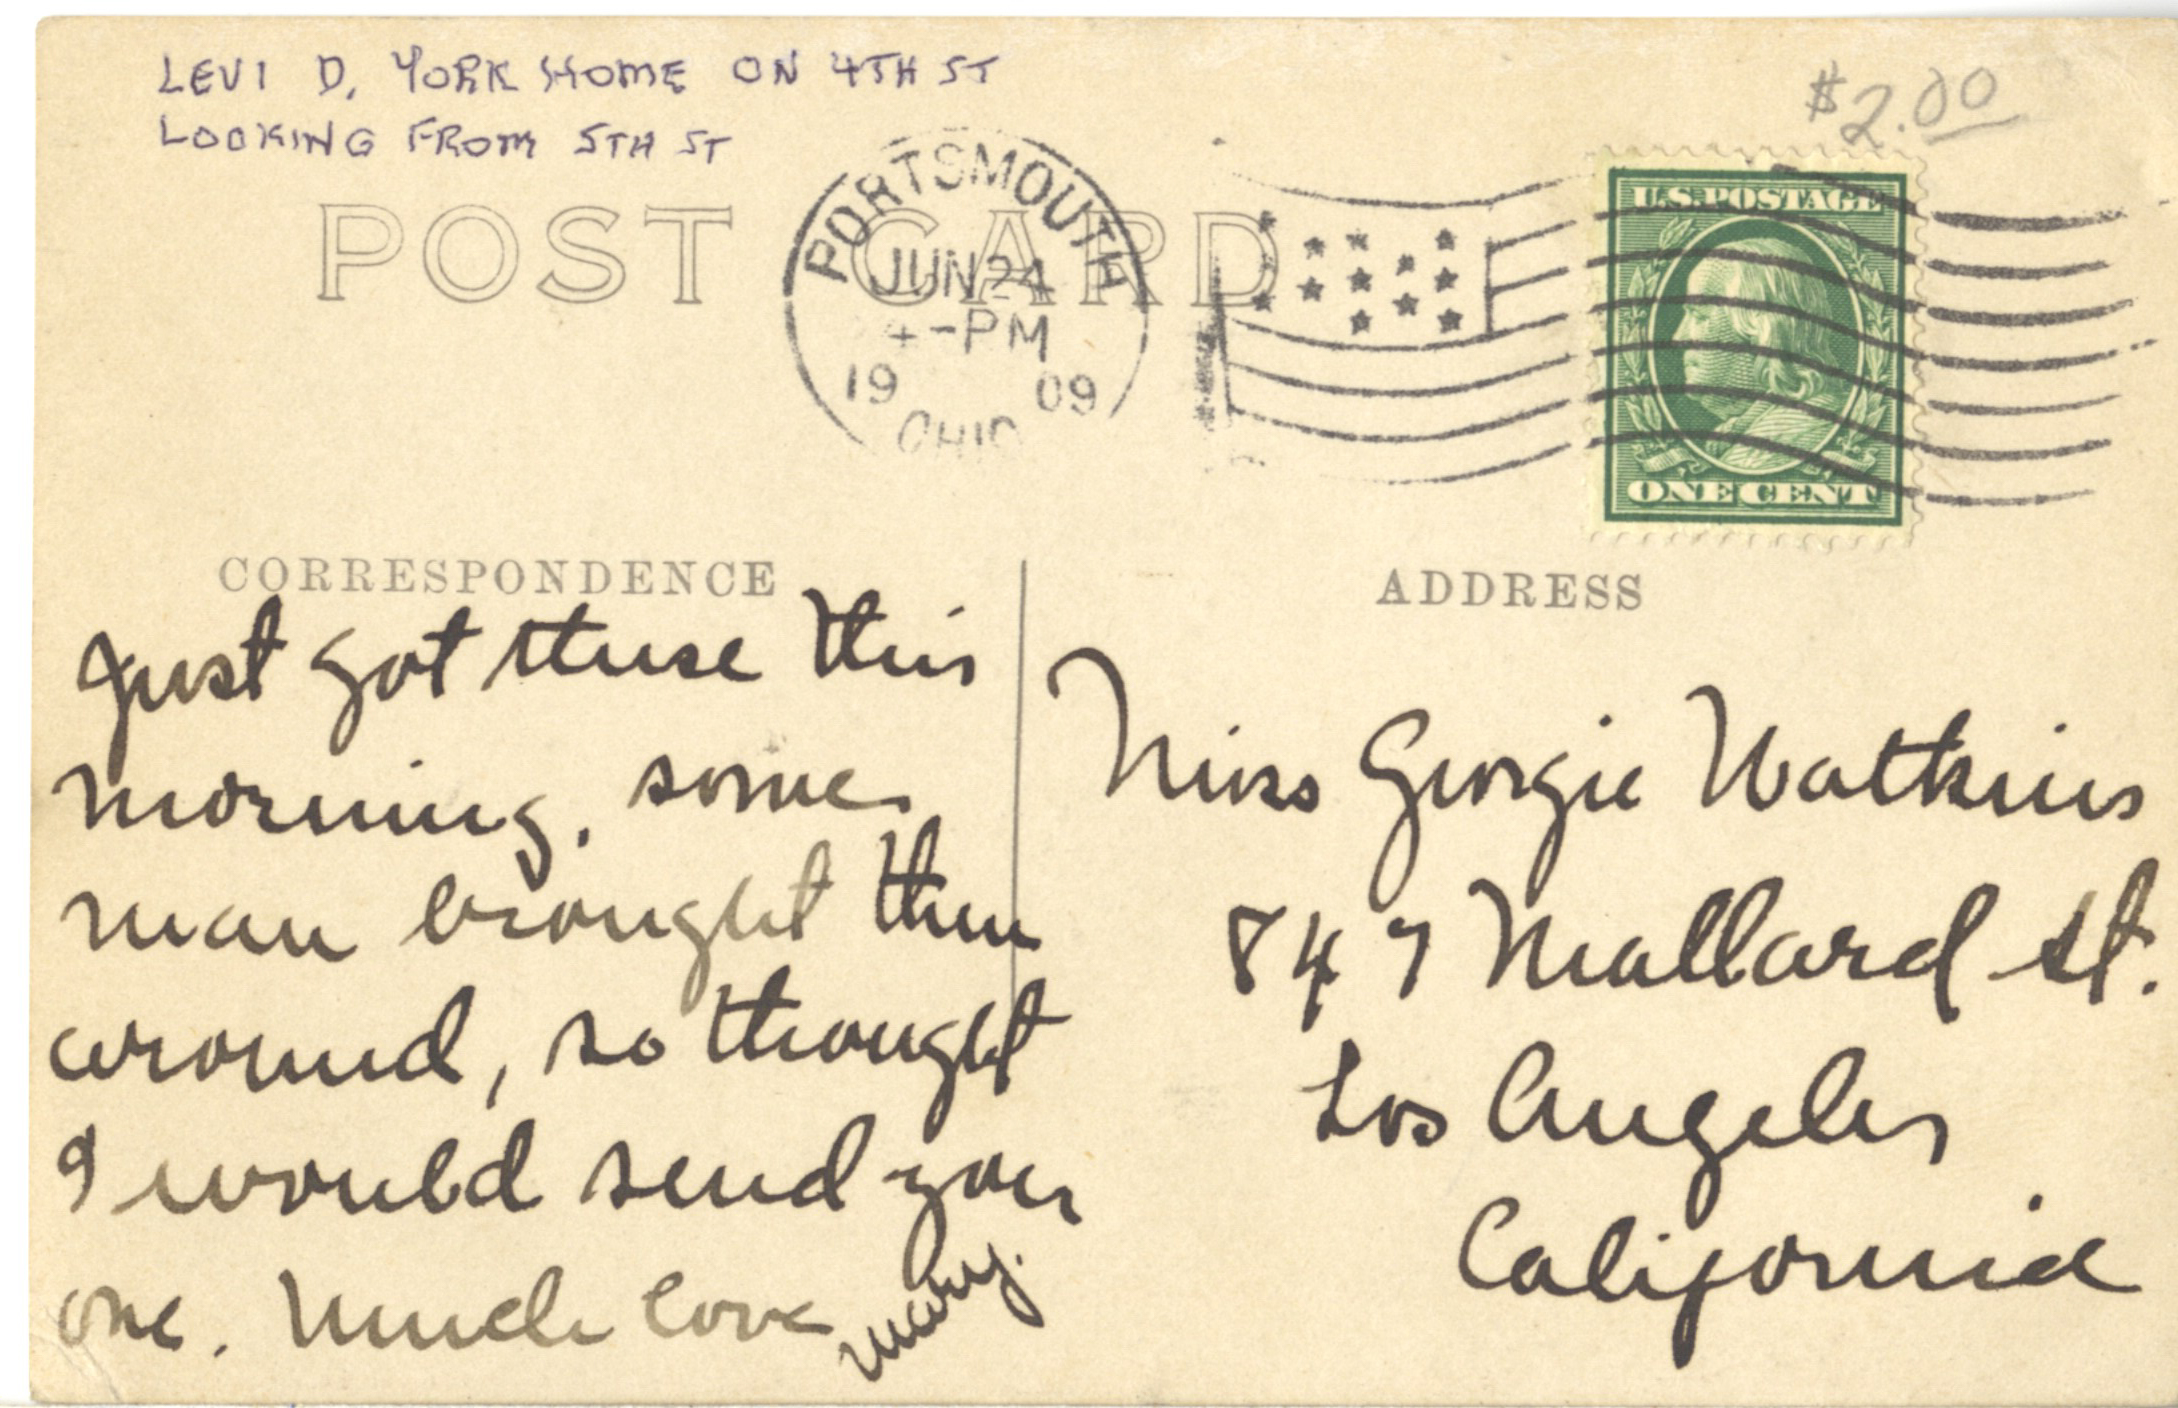 LEVI D. YORK HOME ON 4TH ST
LOOKING FROM 5TH ST
$2.00
POST CARD
PORTSMOUTH
JUN 24
4-PM
19 09
OHIO
U.S. POSTAGE
ONE CENT
CORRESPONDENCE
Just got these this
morning, some
man brought them
around, so thought
I would send you
one. Much love
Mary.
ADDRESS
Miss Georgie Watkins
847 Mallard St.
Los Angeles
California